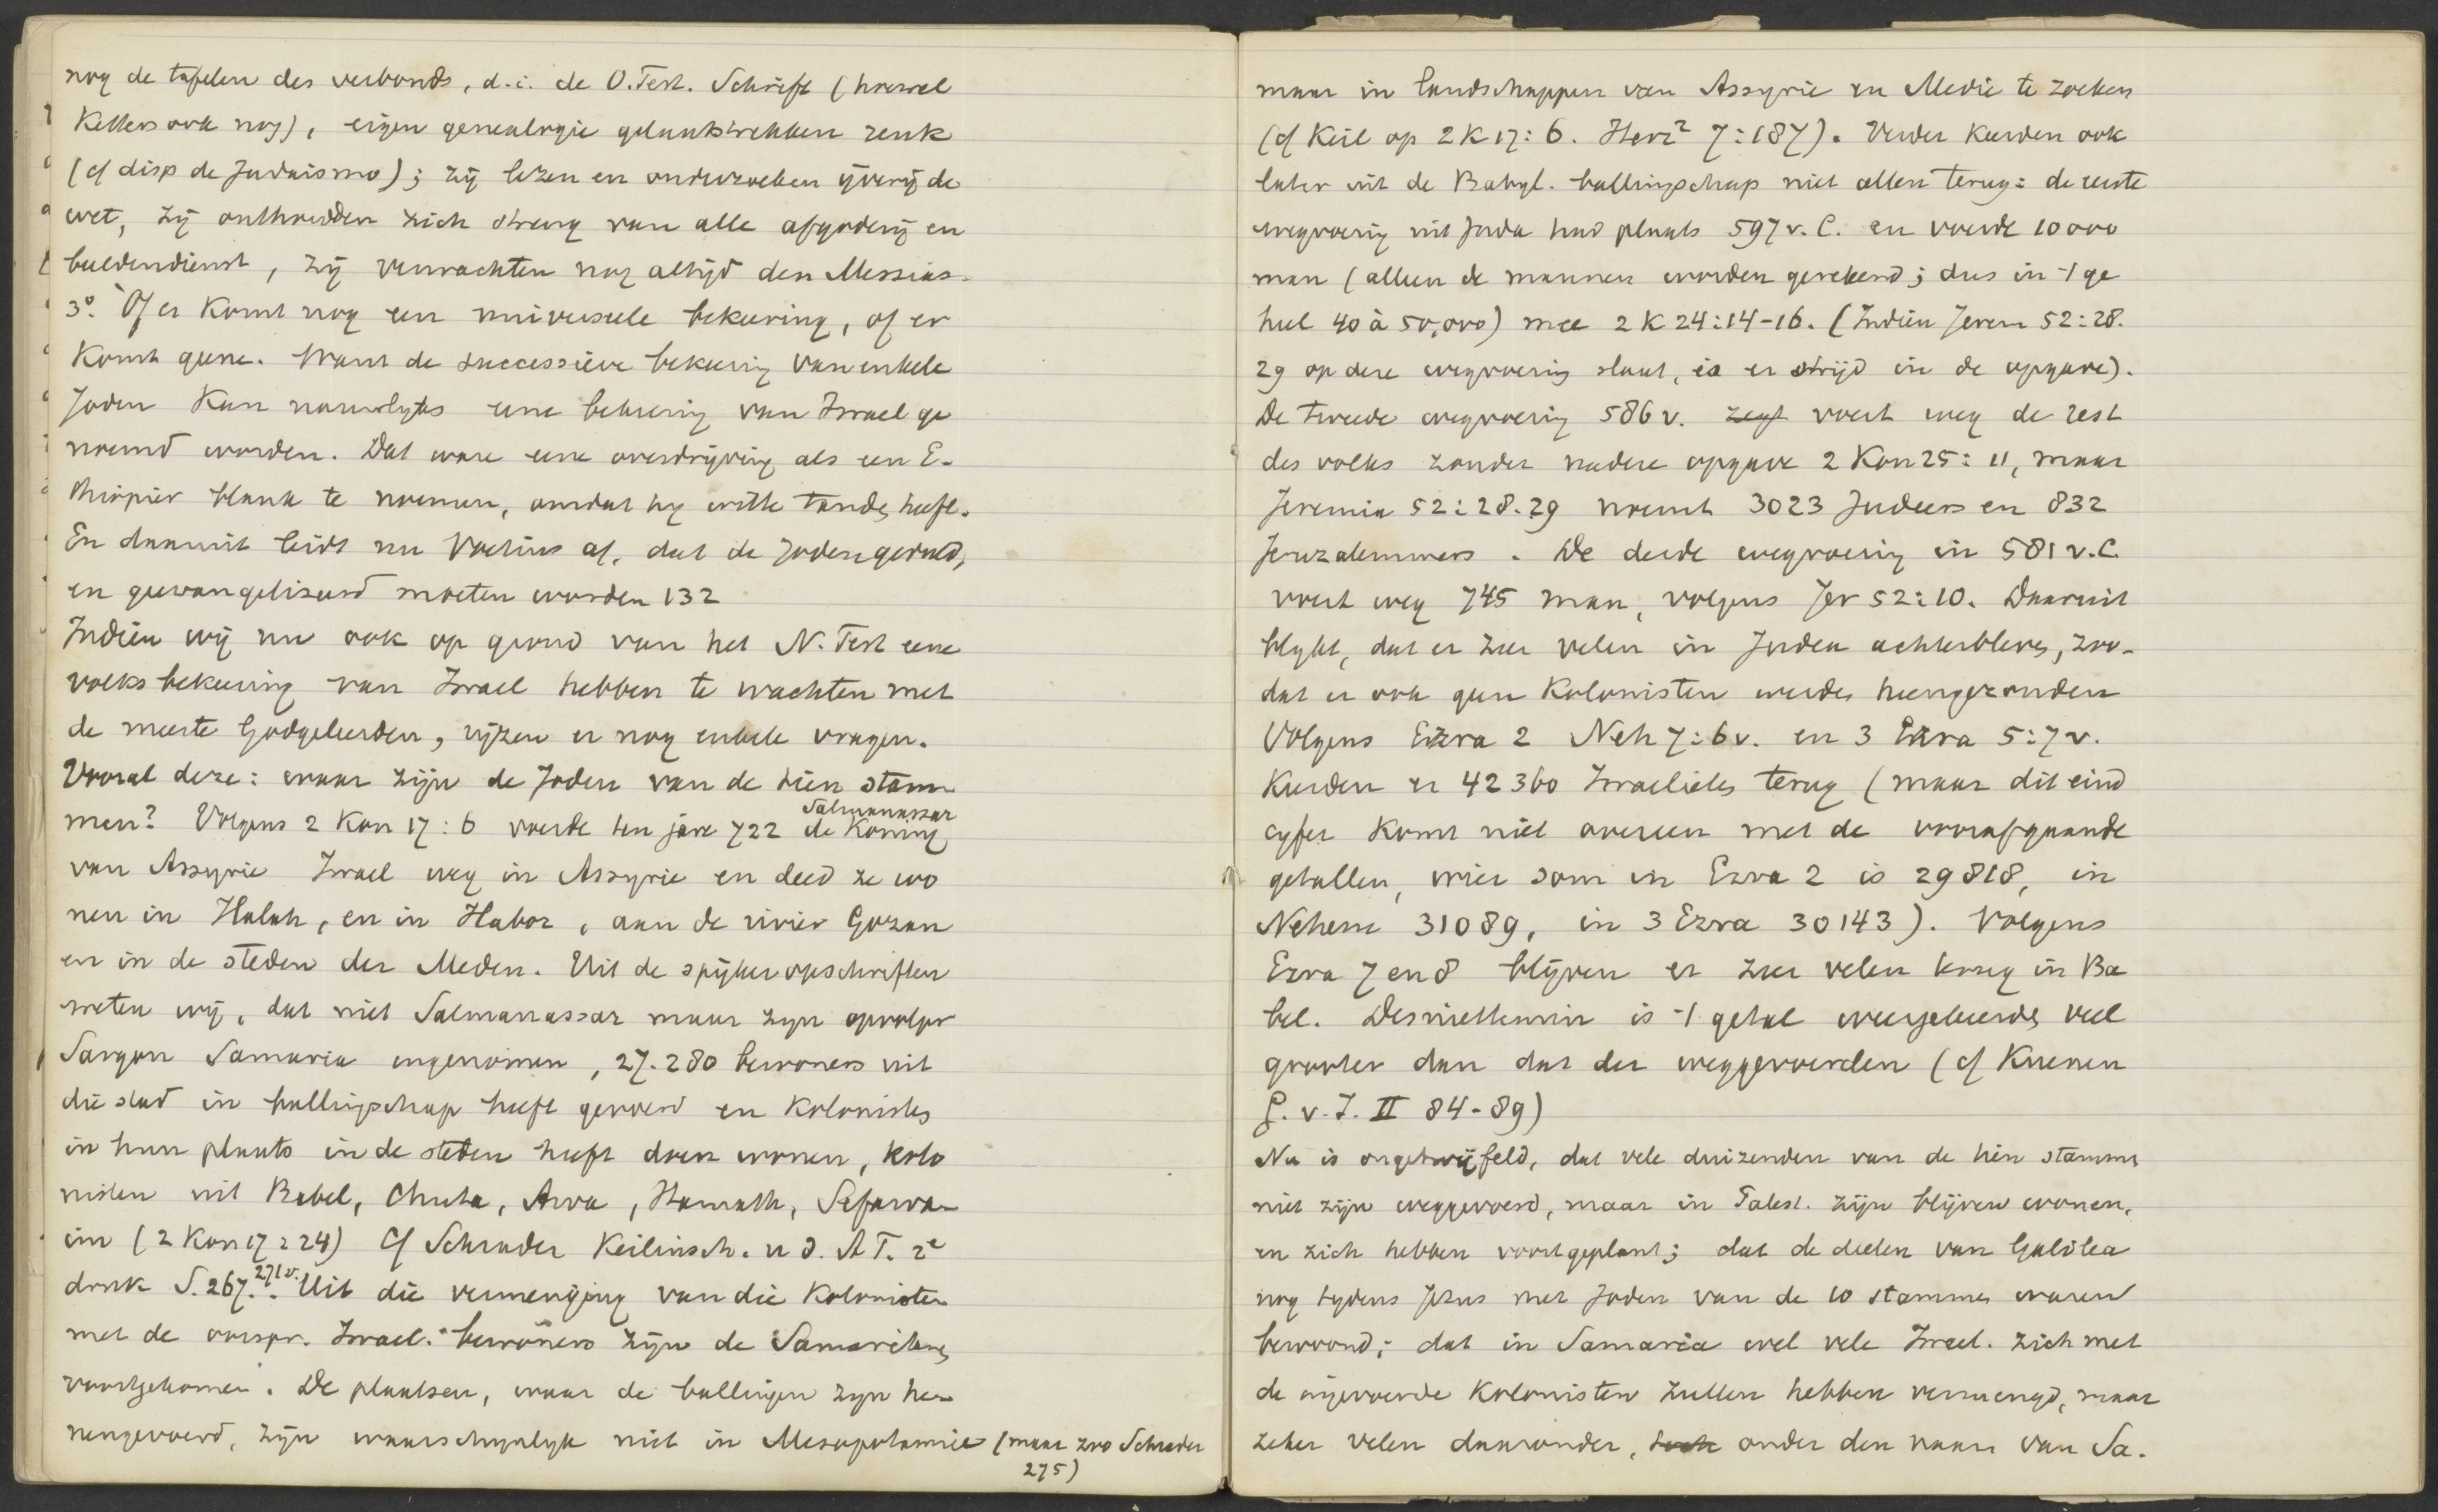 nog de tafelen des verbonds, d.i. de O.Test. Schrift (hoewel
Ketters ook nog), eigen genealogie
(cf disp de Judaismo); zij lezen en onderzoeken ijverig de
wet, zij onthouden zich streng van alle afgoderij en
beeldendienst, zij verwachten nog altijd den Messias.
3º. Of er komt nog een universeele bekeering, of er
komt geene. Want de successieve bekeering van enkele
Joden kan nauwlyks eene bekeering van Israel ge
noemd worden. Dat ware eene overdrijving als een E-
thiopier blank te noemen, omdat hy witte tanden heeft.
En daaruit leidt nu Voetius af, dat de Joden geduld,
en geevangeliseerd moeten worden 132
Indien wij nu ook op grond van het N. Test eene
volksbekeering van Israel hebben te wachten met
de meeste Godgeleerden, rijzen er nog enkele vragen.
Vooral deze: waar zijn de Joden van de tien stam
men? Volgens 2 Kon 17:6 voerde ten jare 722 de Koning Salmanassar
van Assyrie Israel weg in Assyrie en deed ze wo
nen in Halah, en in Habor, aan de rivier Gozan
en in de steden der Meden. Uit de spijkeropschriften
weten wij, dat niet Salmanassar maar zyn opvolger
Sargon Samaria ingenomen, 27.280 bewoners uit
die stad in ballingschap heeft gevoerd en kolonisten
in hun plaats in de steden heeft doen wonen, kolo
nisten uit Babel, Chuta, Avva, Hamath, Sefarva-
im (2 Kon 17:24) Cf Schrader Keilinsch. u d. A T. 2e
druk S. 267. 271v. Uit die vermenging van die Kolonisten
met de oorspr. Israel. bewoners zijn de Samaritanen
voortgekomen. De plaatsen, waar de ballingen zyn he-
nengevoerd, zijn waarschynlyk niet in Mesopotamie (maar zoo Schrader
275)
maar in landschappen van Assyrie en Medie te zoeken
(cf Keil op 2 K 17:6. Herz² 7:187). Verder keerden ook
later uit de Babyl. ballingschap niet allen terug: de eerste
wegvoering uit Juda had plaats 597 v. C. en voerde 10000
man (alleen de mannen worden gerekend; dus in 't ge
heel 40 à 50,000) mee 2 K 24:14-16. (Indien Jerem 52:28.
29 op deze wegvoering slaat, is er strijd in de opgave).
De tweede wegvoering 586 v. zegt voert weg de rest
des volks zonder nadere opgave 2 Kon 25:11, maar
Jeremia 52:28.29 noemt 3023 Judeers en 832
Jeruzalemmers. De derde wegvoering in 581 v.C.
voert weg 745 man, volgens Jer 52:10. Daaruit
blykt, dat er zeer velen in Judea achterbleven, zoo-
dat er ook geen Kolonisten werden heengezonden
Volgens Ezra 2 Neh 7:6 v. en 3 Ezra 5:7 v.
keerden er 42360 Israelieten terug (maar dit eind
cyfer komt niet overeen met de voorafgaande
getallen, wier som in Ezra 2 is 29818, in
Nehem 31089, in 3 Ezra 30143). Volgens
Ezra 7 en 8 blijven er zeer velen terug in Ba
bel. Desniettemin is 't getal weergekeerden veel
grooter dan dat der weggevoerden (cf Kuenen
G. v. I. II 84-89)
Nu is ongetwijfeld, dat vele duizenden van de tien stammen
niet zijn weggevoerd, maar in Palest. zijn blijven wonen,
en zich hebben voortgeplant; dat de deelen van Galilea
nog tydens Jezus met Joden van de 10 stammen waren
bewoond; dat in Samaria wel vele Israel. zich met
de ingevoerde Kolonisten zullen hebben vermengd, maar
zeker velen daaronder, toch onder den naam van Sa-